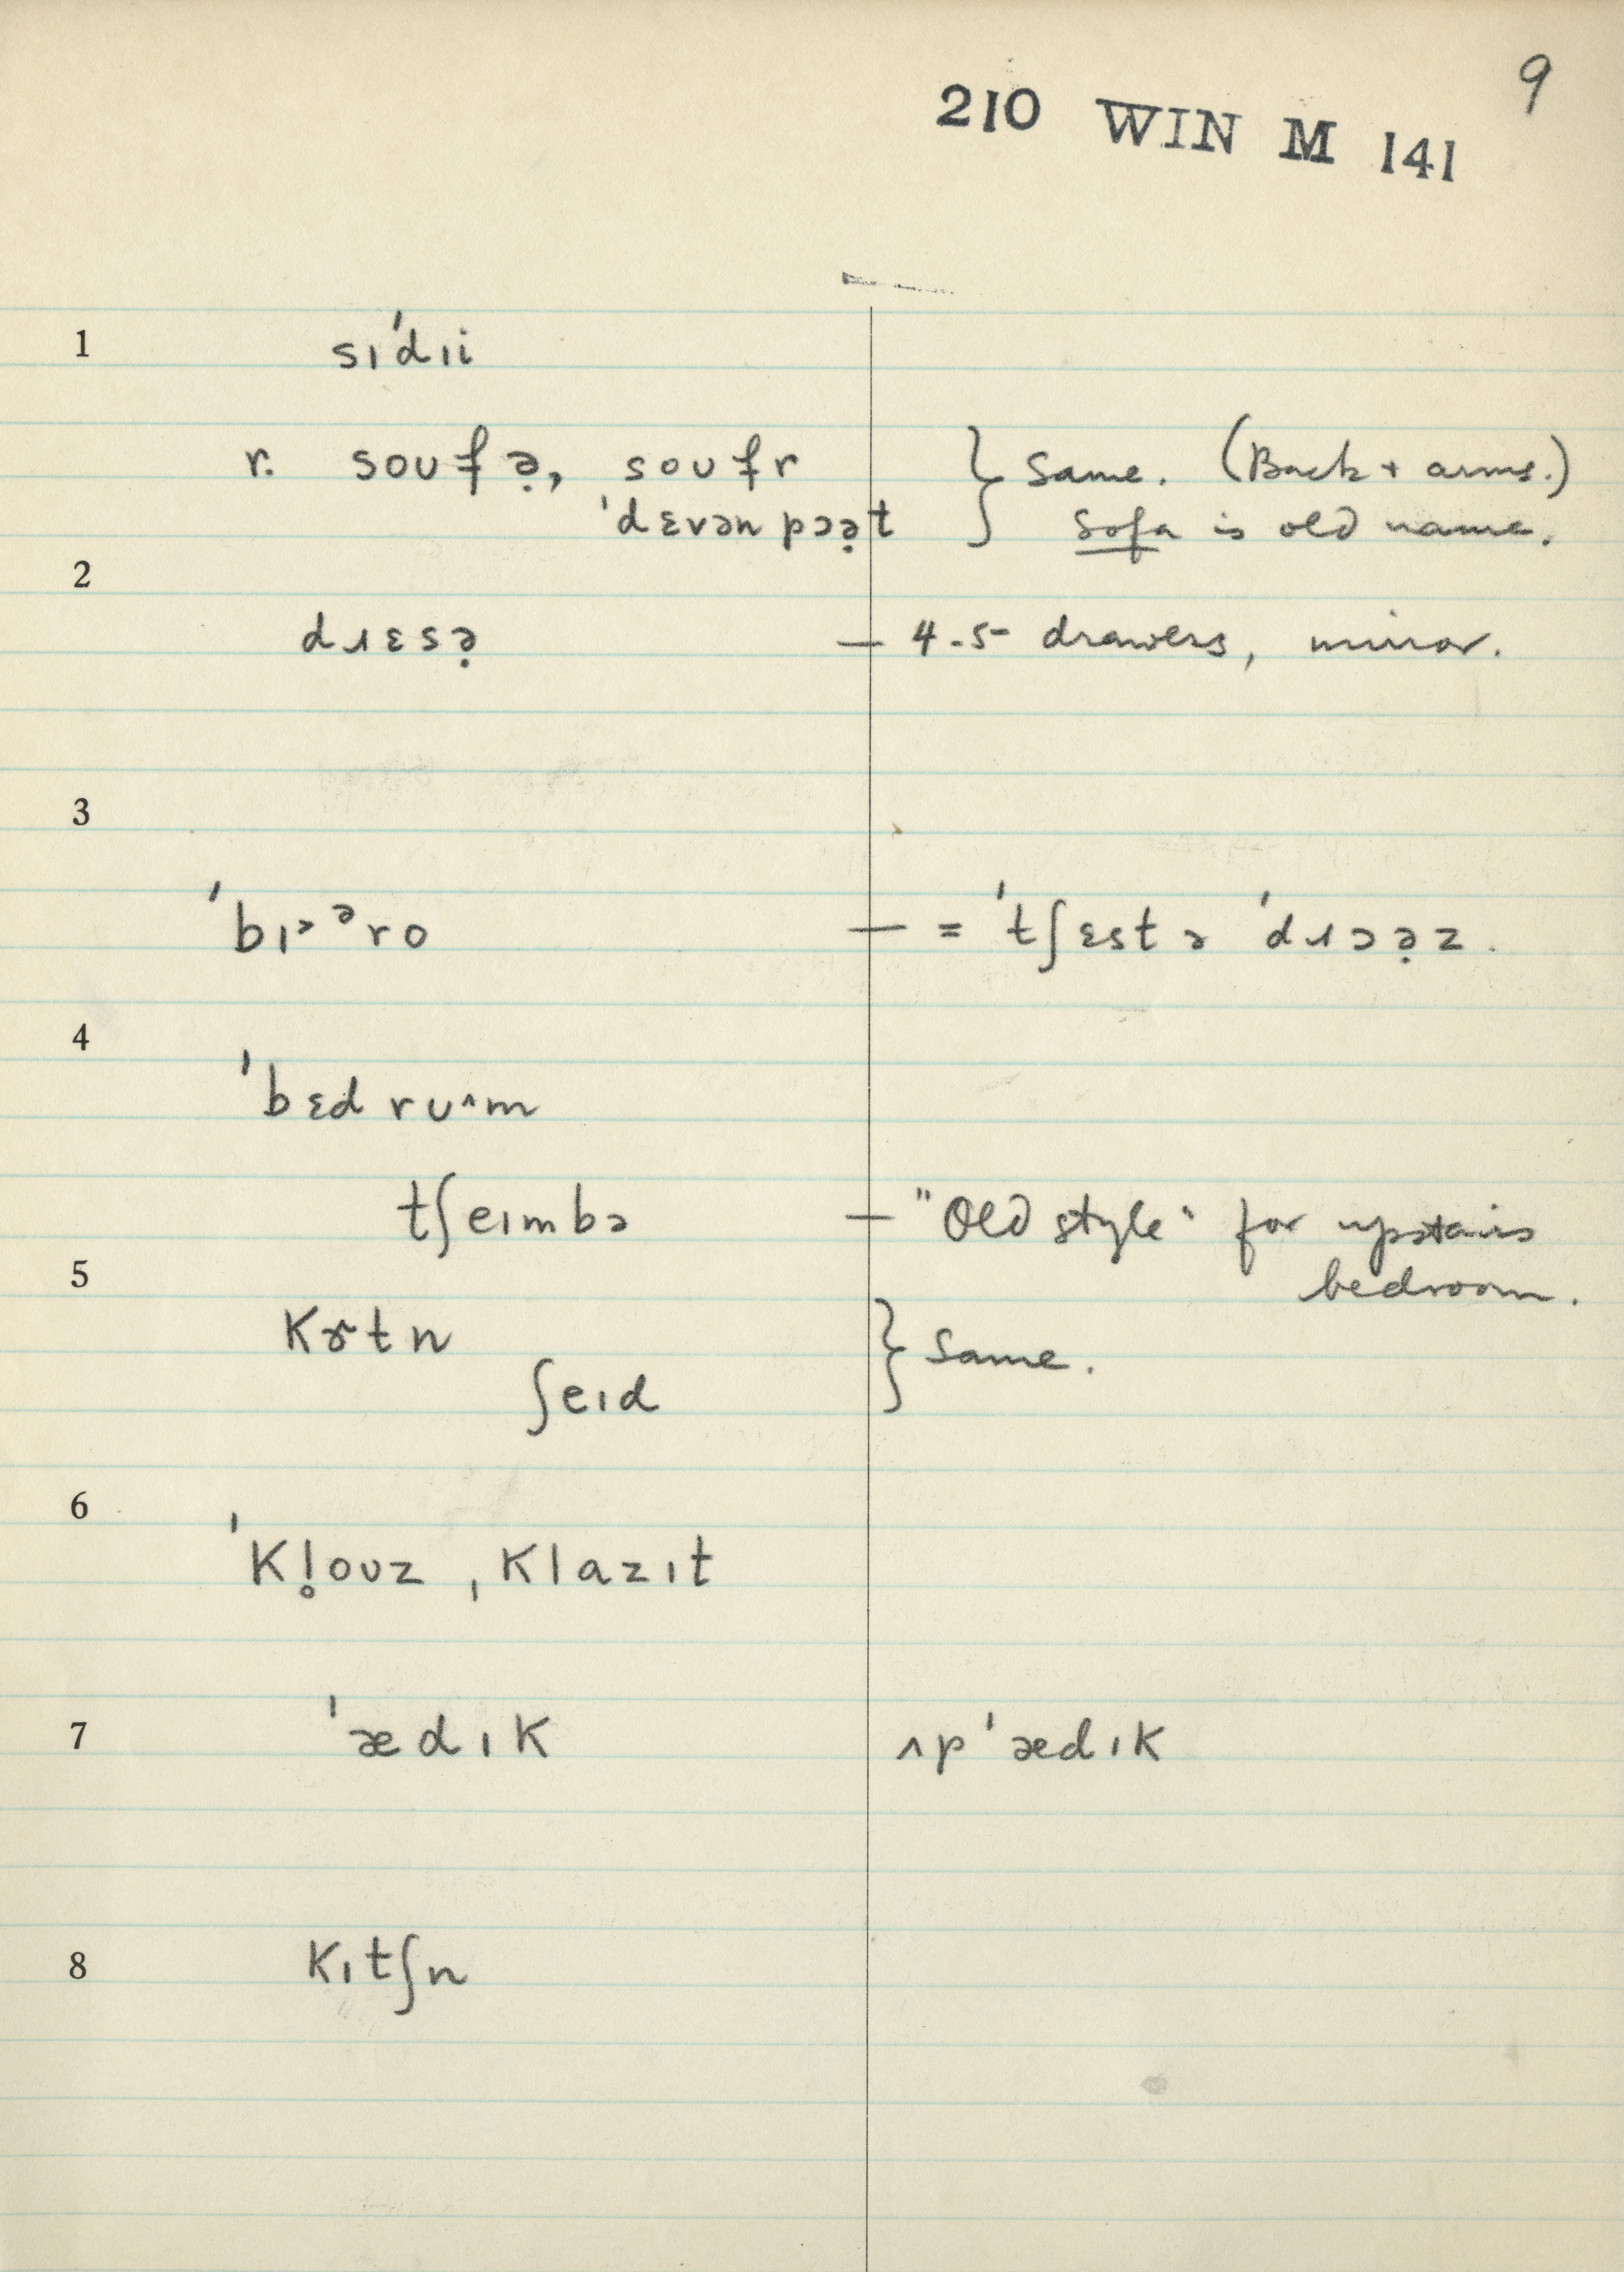 9
210 WIN M 141
1 sɪˈdɪi
r. soʊfə̣, soʊfr } Same. (Back + arms.)
ˈdɛvən pɔə̣t Sofa is old name.
2
dɹɛsə̣ — 4-5 drawers, mirror.
3
ˈbɪ˃ᵊro — = ˈtʃɛst ə ˈdɹɔə̣z.
4
ˈbɛd rʊ^m
tʃeɪmbə — "Old style" for upstairs
bedroom.
5
kɤtn } Same.
ʃeɪd
6
ˈkl̥oʊz ˌklazɪt
7 ˈædɪk ʌpˈædɪk
8 kɪtʃn